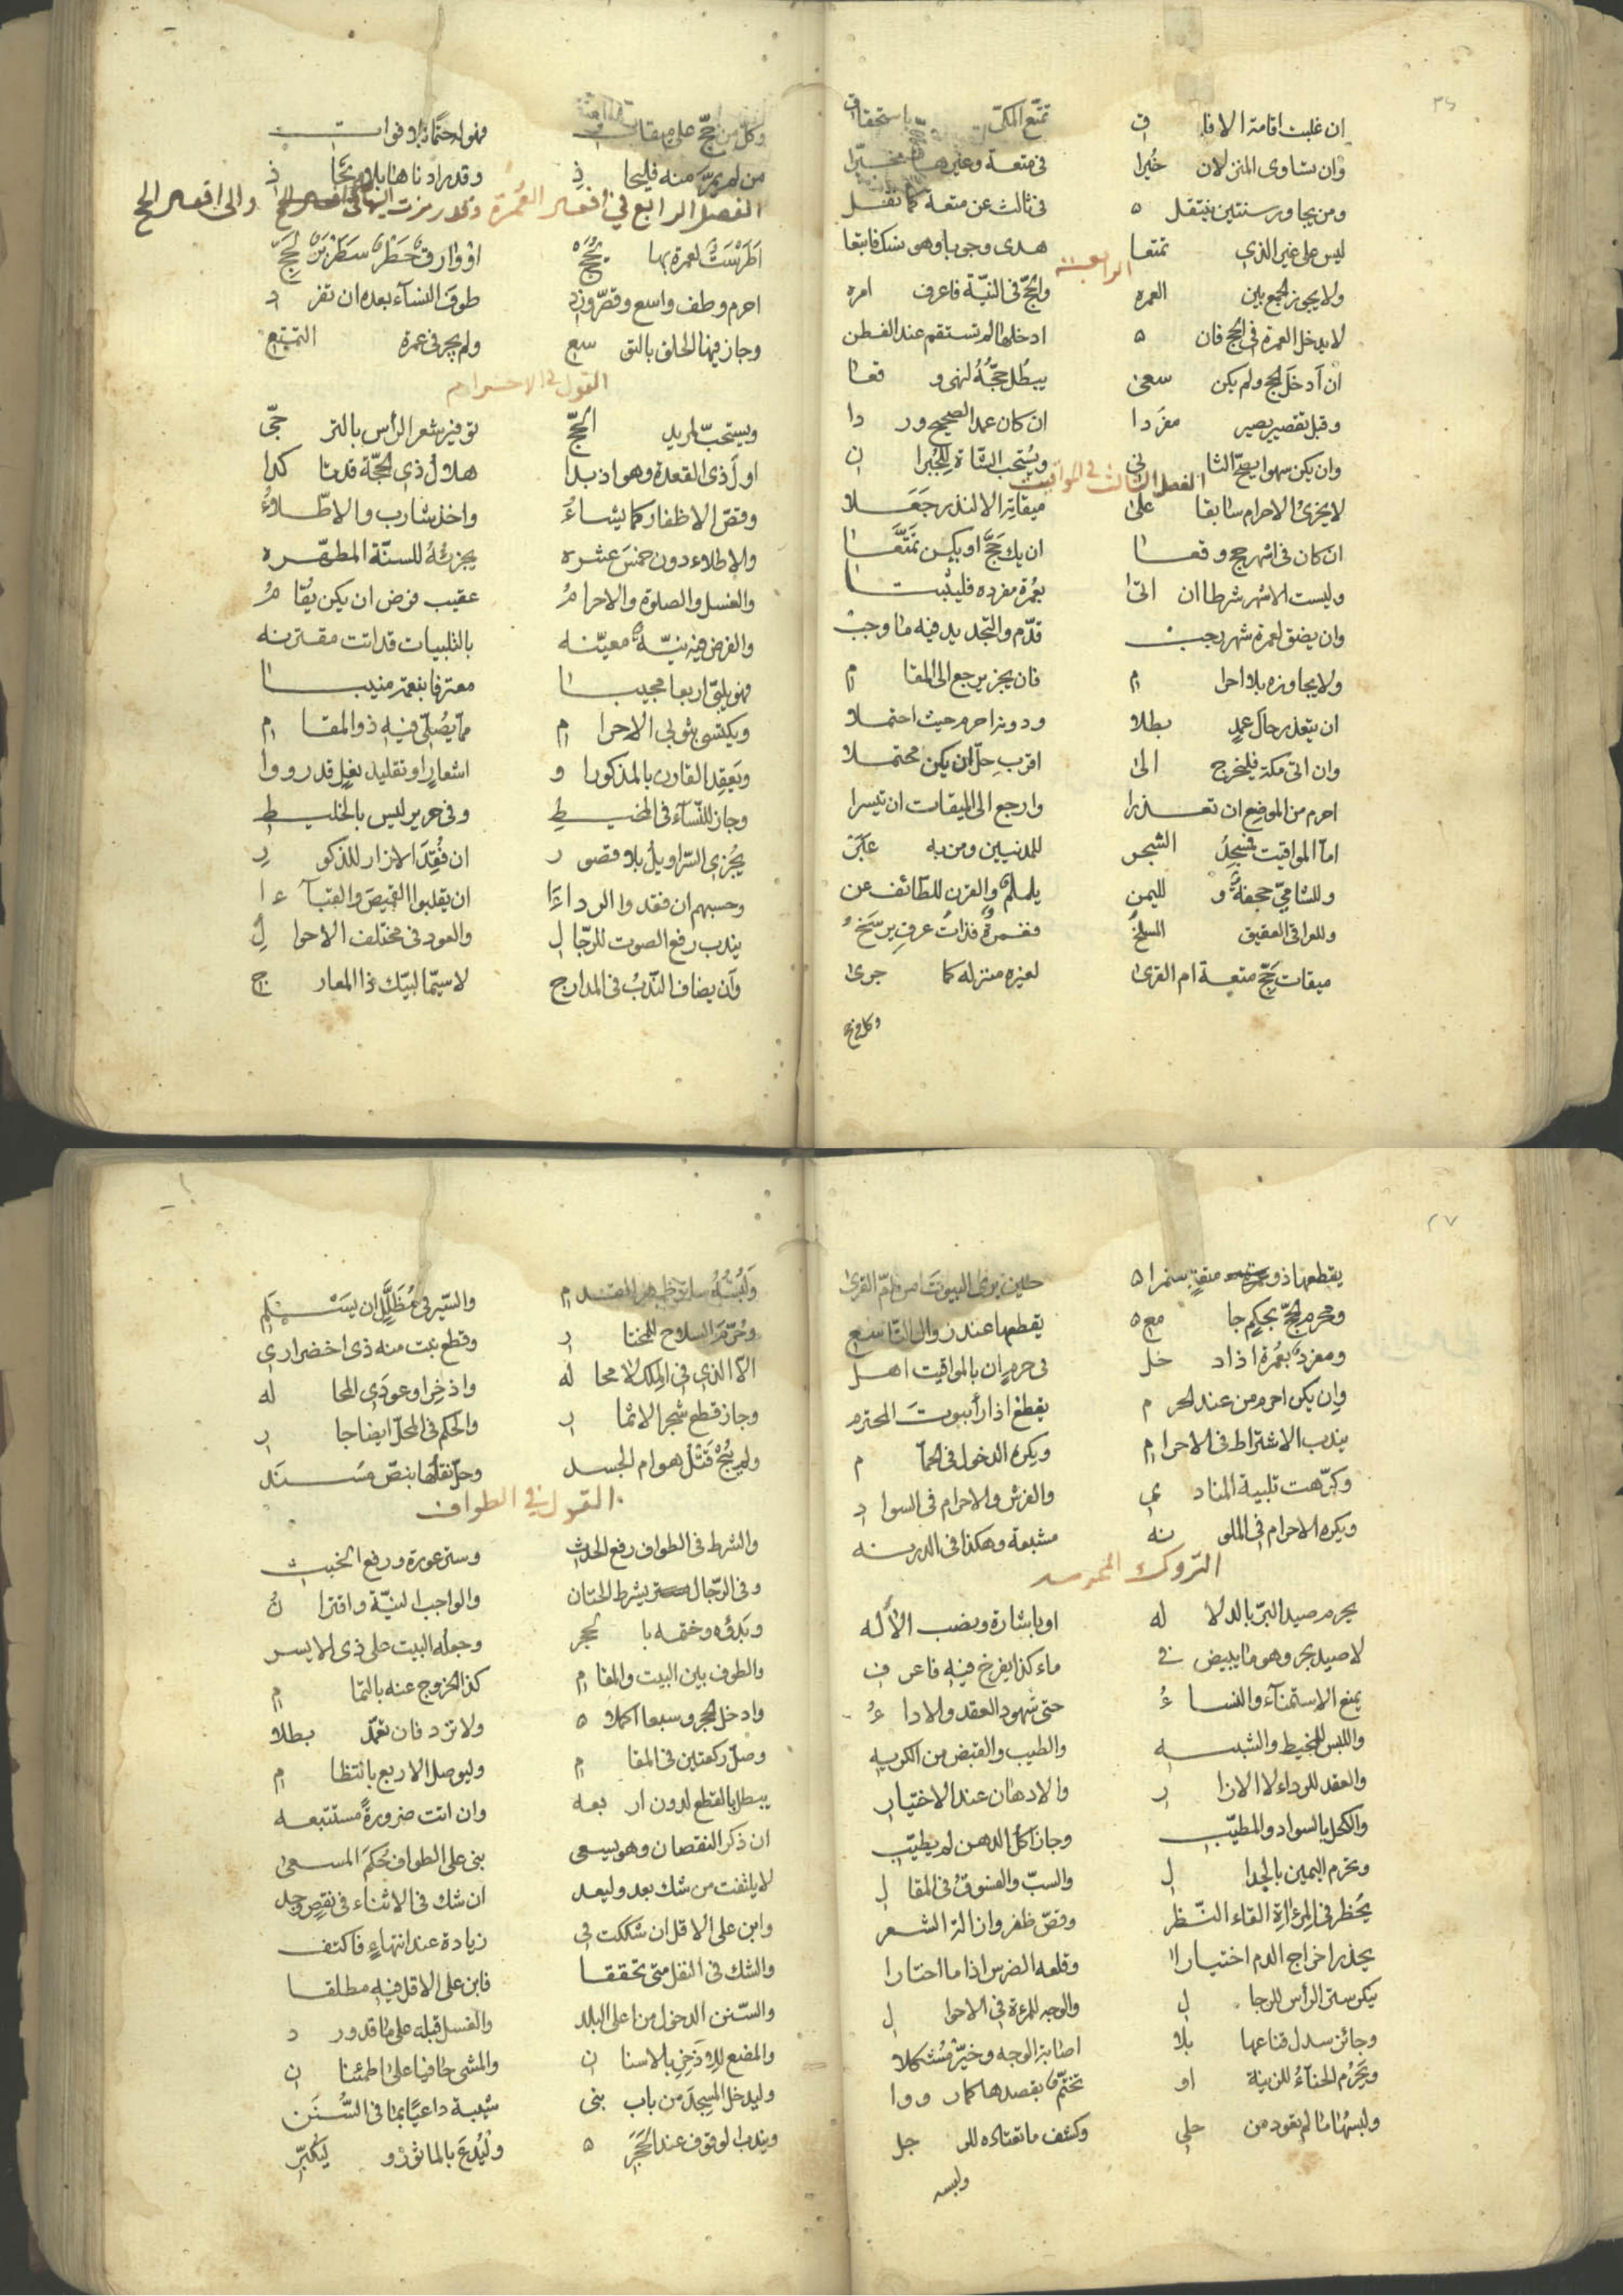 ان غلبت اقامة الافا ق تمتع المكي باستحقاق
وان تساوى المنزلان خُيرا في متعة وغيرها مخيّرا
ومن يجاور سنتين ينتقل في ثالث عن متعة كما نقل
ليس على غير الذي تمتعا هدى وجوبا وهو نسك فاتبعا
الرابعة
ولا يجوز الجمع بين العمرة والحج في النية فاعرف امره
لا يدخل العمرة في الحج فان ادخلها لم تستقم عند الفطن
ان ادخل الحج ولم يكن سعى يبطل حجّه لنهى وقعا
وقبل تقصير يصير مفردا ان كان عمدا لصحيح وردا
وان يكن سهوا يصح الثاني ويستحب الشاة للجبران
الفصل الثالث في المواقيت
لا يجزئ الاحرام سابقا على ميقاته الا لنذر جعلا
ان كان في اشهر حج وقعا ان يك حجّا او يكن تمتّعا
وليست الاشهر شرطا ان اتى بعمرة مفرده فليثبتا
وان يضق لعمرة شهر رجب قدّم والتجديد فيه ما وجب
ولا يجاوزه بلا احرا م فان يجز يرجع الى المقا م
ان يتعذر حال عمدٍ بطلا ودونه احرم حيث احتملا
وان اتى مكة فليخرج الى اقرب حلّ ان يكن محتملا
احرم من الموضع ان تعذرا وارجع الى الميقات ان تيسرا
اما المواقيت فمسجد الشجر للمدنيين ومن به عَبَر
وللشامي جحفة و لليمن يلملم والقرن للطائف عن
وللعراقي العقيق السلخ فغمرة فذات عرق يرسخ
ميقات حجّ متعة ام القرى لغيره منزله كما جرى
وكل من حج
وكل من حجّ على ميقات فهو له حتما بلا فوات
من لم يمرّ منه فليحاذ وقدر ادناها بلا تحاذ
الفصل الرابع في افعال العمرة وقد رمزت اليها والى افعال الحج
احرم وطف واسع وقصّر وزد طوف النساء بعده ان تفرد
وجاز فيها الحلق بالتوسع ولم يجز في عمرة التمتع
القول في الاحرام
ويستحبّ لمريد الحجّ توفير شعر الرأس بالترجّي
اول ذى القعدة وهو اذ بدا هلال ذي الحجّة قدتا كدا
وقصّ الاظفار كما يشاءُ واخذ شارب والاطّلاءُ
والاطلاء دون خمس عشره يجزئهُ للسنّة المطهّره
والغسل والصلوة والاحرامُ عقيب فرض ان يكن يقامُ
والفرض فيه نيّة معيّنه بالتلبيات قد اتت مقترنه
فهو يلبّي اربعا مجيبا معترفا بنعمة منيبا
ويكتسي بثوبي الاحرا م ممّا يُصلّى فيه ذو المقا م
ويعقد القارن بالمذكور او اشعارٍ او تقليد نعلٍ قد رووا
وجاز للنّساء في المخيط وفي حرير ليس بالخليط
يُجزى السّراويل بلا قصور ان فُقِدَ الازار للذكور
وحسبهم ان فقدوا الرداءا ان يقلبوا القميص والقباءا
يندب رفع الصوت للرّجا ل والعود في مختلف الاحوا لِ
وان يضاف الندبُ في المدارج لا سيّما لبيك ذا المعارج
يقطعها ذو متعة حين يرى البيوت من امّ القرى
ومحرم الحجّ بحكم جامع يقطعها عند زوال التاسع
ومفرد بعمرة اذا دخل في حرم ان بالمواقيت اهل
وان يكن احرم من عند الحرم يقطع اذا رأى بيوت المحترم
يندب الاشتراط في الاحرا م ويكره الدخول في الحمّا م
وكرّهت تلبية المنادي والفرش والاحرام في السوا د
ويكره الاحرام في الملونه مشبعة وهكذا في الدرنه
التروك المحرمه
يحرم صيد البرّ بالدلا له او باشارة ونصب الآله
لا صيد بحر وهو ما يبيض في ماء كذا يفرخ فيه فاعرف
يمنع الاستمناء والنساءُ حتى شهود العقد والاداءُ
واللبس للمخيط والشبيه والطيب والقبض من الكريه
والعقد للرداء لا الازا ر والادهان عند الاختيار
والكحل بالسواد والمطيّب وجاز اكل الدهن لم يطيّب
وتحرم اليمين بالجدا ل والسبّ والفسوق في المقا ل
يُحظر في المرآة القاء النّظر وقصّ ظفر وازالة الشعر
يحذر اخراج الدم اختيارا وقلعه الضرس اذا ما اختارا
ستر الرأس للرجا ل والوجه للمرءة في الاحوا ل
وجائز سدل قناعها بلا اصابة الوجه وخيّر مشكلا
ويحرم الحناء للزينة او تختّم بقصدها كما رووا
ولبسها ما لم تعود من حلي وكشف ما تعتاده للرجل
ولبسه
ولُبسُهُ ساتر ظهر القدم والسّير في مظلّل ان يستلم
وحُرّمَ السلاح للمختا ر وقطع نبت منه ذي اخضرار
الا الذي في الملك لا محا له واذخرا وعودي المحا له
وجاز قطع شجر الاثما ر والحكم في المحلّ ايضا جار
ولم يُبَح قتل هوام الجسد وحلّ نقلها بنصّ مسند
القول في الطواف
والشرط في الطواف رفع الحدث وستر عورة ورفع الخبث
وفي الرّجال يشرط الختان والواجب النيّة واقترا نُ
وبدؤه وختمه با لحجر وجعله البيت على ذي الايسر
والطوف بين البيت والمقا م كذا الخروج عنه بالتما م
وادخل الحجر وسبعا اكملا ولا تزد فان تعمّد بطلا
وصلّ ركعتين في المقا م وليوصل الاربع بانتظا م
يبطل بالقطع لدون ار بعه وان اتت ضرورةً مستتبعه
ان ذكر النقصان وهو يسعى بنى على الطواف حُكم المسعى
لا يلتفت من شك بعد وليعد ان شك في الاثناء في نقصٍ وجد
وابن على الاقل ان شككت في زيادة عند انتهاءٍ فاكتف
والشك في النفل متى تحققا فابن على الاقل فيه مطلقا
والسّنن الدخول من اعلى البلد والغسل قبله على ما قد ور د
والمضغ للاذخر بالاسنا ن والمشي حافيا على اطمئنا ن
وليدخل المسجد من باب بني شيبة داعيًا بما في السُّنن
ويندب الوقوف عند الحَجَر وليُدعَ بالماثور و ليكبّر